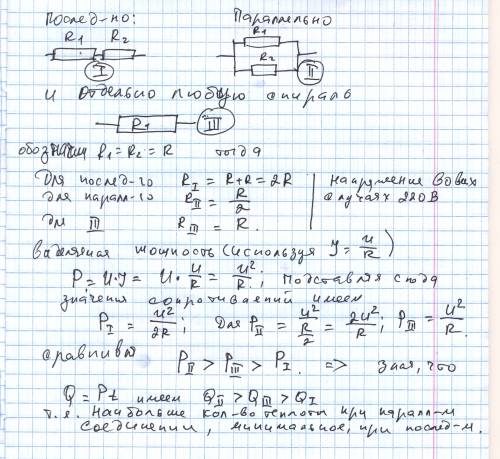 Послед-но: Параллельно
R₁ R₂ R₁
I R₂ II
и отдельно любую спираль
R₁ III
обозначим R₁ = R₂ = R тогда
Для послед-го R_I = R+R = 2R напряжение во всех
для парал-го R_II = R/2 случаях 220 В
для III R_III = R.
выделяемая мощность (используя I = U/R)
P = U·I = U·U/R = U²/R; Подставляя сюда
значения сопротивлений имеем
P_I = U²/2R; Для P_II = U²/(R/2) = 2U²/R; P_III = U²/R.
сравнивая P_II > P_III > P_I. => зная, что
Q = Pt имеем Q_II > Q_III > Q_I
т.е. Наибольшее кол-во теплоты при паралл-м
соединении, минимальное, при послед-м.